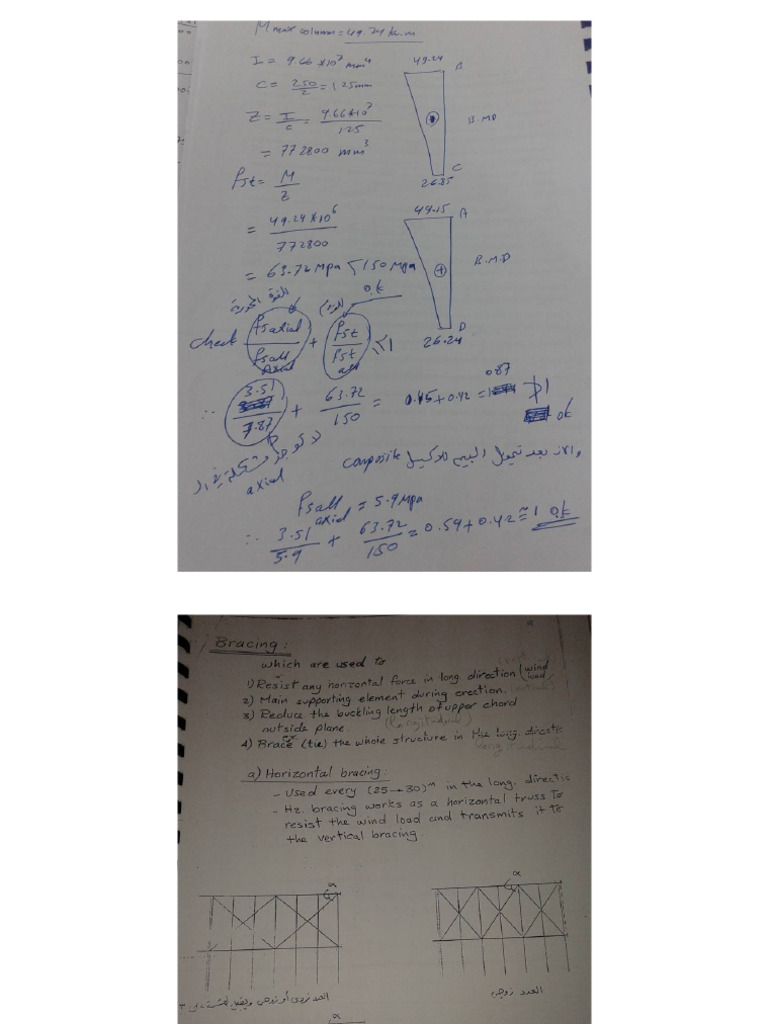 M max column = 49.24 kN.m
I = 9.66*10⁷ mm⁴
C = 250/2 = 125 mm
Z = I/C = 9.66*10⁷/125
= 772800 mm³
fst = M/Z
= 49.24*10⁶/772800
= 63.72 Mpa < 150 Mpa
o.k
49.24
B
B.MD
C
26.85
49.15
A
B.M.D
D
26.24
القوة المحورية
check fs axial/fsall axial + fst/fst all ≤ 1
∴ 3.51/7.87 + 63.72/150 = 0.45+0.42 = 0.87 1
ok
axial
والان بعد تحويل البيم composite
fsall axial = 5.9 Mpa
∴ 3.51/5.9 + 63.72/150 = 0.59+0.42 ≈ 1 o.k
Bracing:
which are used to
1) Resist any horizontal force in long. direction (wind load
2) Main supporting element during erection.
3) Reduce the buckling length of upper chord
outside plane. (longitudinal)
4) Brace (tie) the whole structure in the long. directio
longitudinal
a) Horizontal bracing:
- Used every (25→30)ᵐ in the long. directio
- Hz. bracing works as a horizontal truss to
resist the wind load and transmits it to
the vertical bracing.
α
α
العدد فردي أو زوجي
العدد زوجي
α